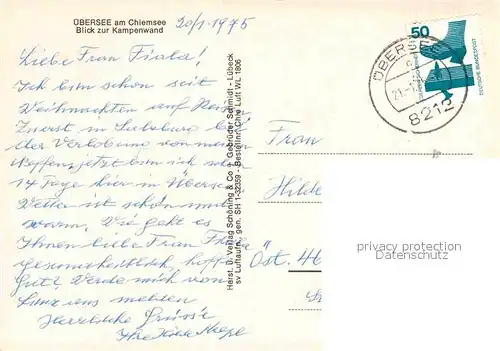 ÜBERSEE am Chiemsee
Blick zur Kampenwand
20/1. 1975
Liebe Frau Fiala!
Ich bin schon seit
Weihnachten auf
Zuerst in
der Verlobung von
jetzt bin ich
14 Tage hier in Übersee
Wetter ist schön und
warm. Wie geht es
Ihnen liebe Frau Fiala
gesundheitlich, hoffe
Gut! Werde mich von
Linz aus melden
Herzliche Grüsse
Ihre
Herst. u. Verlag Schöning & Co + Gebrüder Schmidt - Lübeck
sv Luftaufn. gen. SH 1-32359 - Bestellnr. Ohre Luft WL 1806
50
DEUTSCHE BUNDESPOST
ÜBERSEE
8212
Frau
Hilde
Öst. 46
privacy protection
Datenschutz